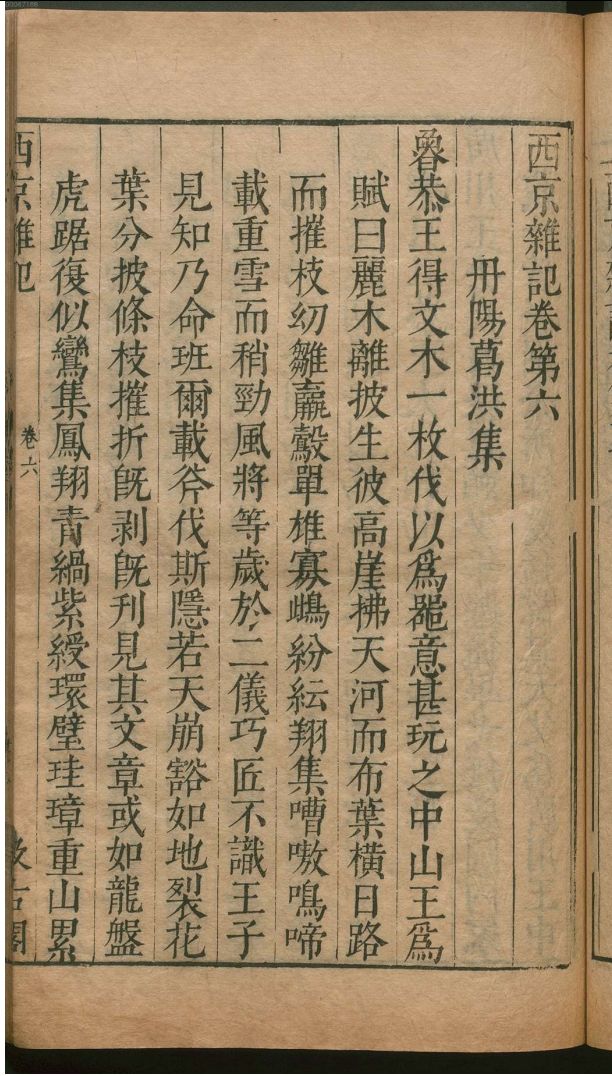 西京雜記卷第六
丹陽葛洪集
魯恭王得文木一枚伐以爲噐意甚玩之中山王爲
賦曰麗木離披生彼高崖拂天河而布葉橫日路
而摧枝幼雛羸鷇單雄寡雌紛紜翔集嘈嗷鳴啼
載重雪而稍勁風將等歲於二儀巧匠不識王子
見知乃命班爾載斧伐斯隱若天崩豁如地裂花
葉分披條枝摧折旣剥旣刊見其文章或如龍盤
虎踞復似鸞集鳳翔青緺紫綬環璧珪璋重山累
西京雜記
卷六
汲古閣